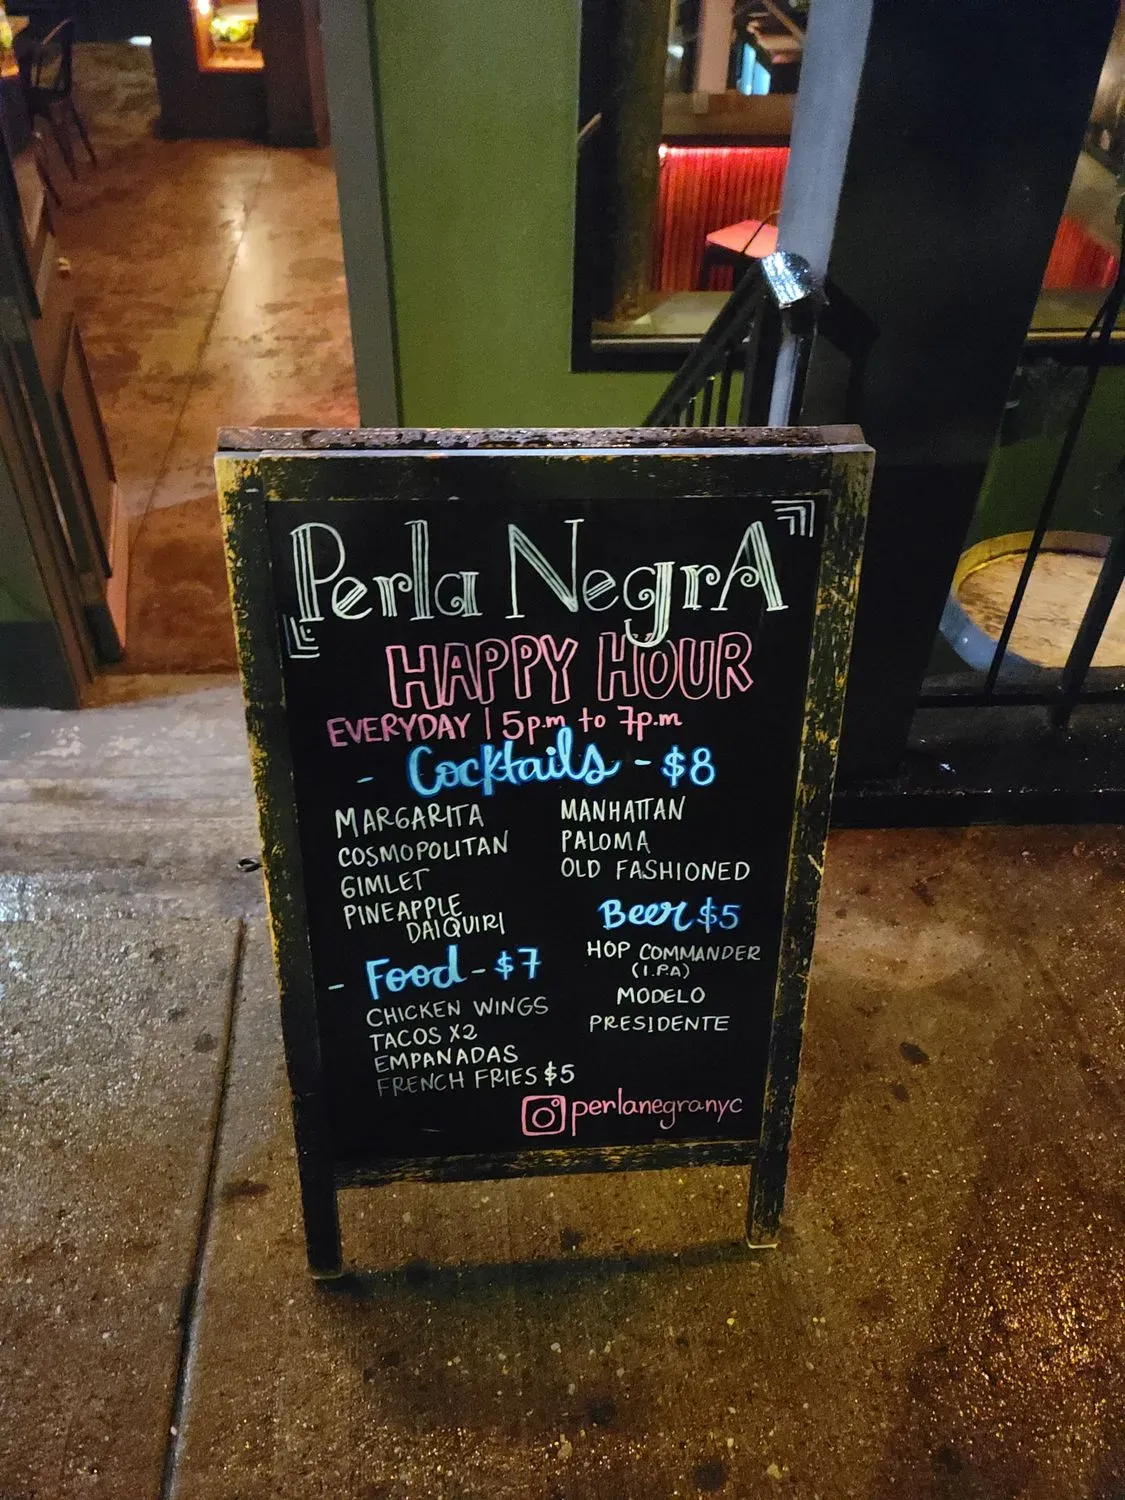 Perla NegrA
HAPPY HOUR
EVERYDAY | 5p.m to 7p.m
- Cocktails - $8
MARGARITA
COSMOPOLITAN
GIMLET
PINEAPPLE
DAIQUIRI
MANHATTAN
PALOMA
OLD FASHIONED
- Food - $7
CHICKEN WINGS
TACOS X2
EMPANADAS
FRENCH FRIES $5
Beer $5
HOP COMMANDER
(I.P.A)
MODELO
PRESIDENTE
perlanegranyc